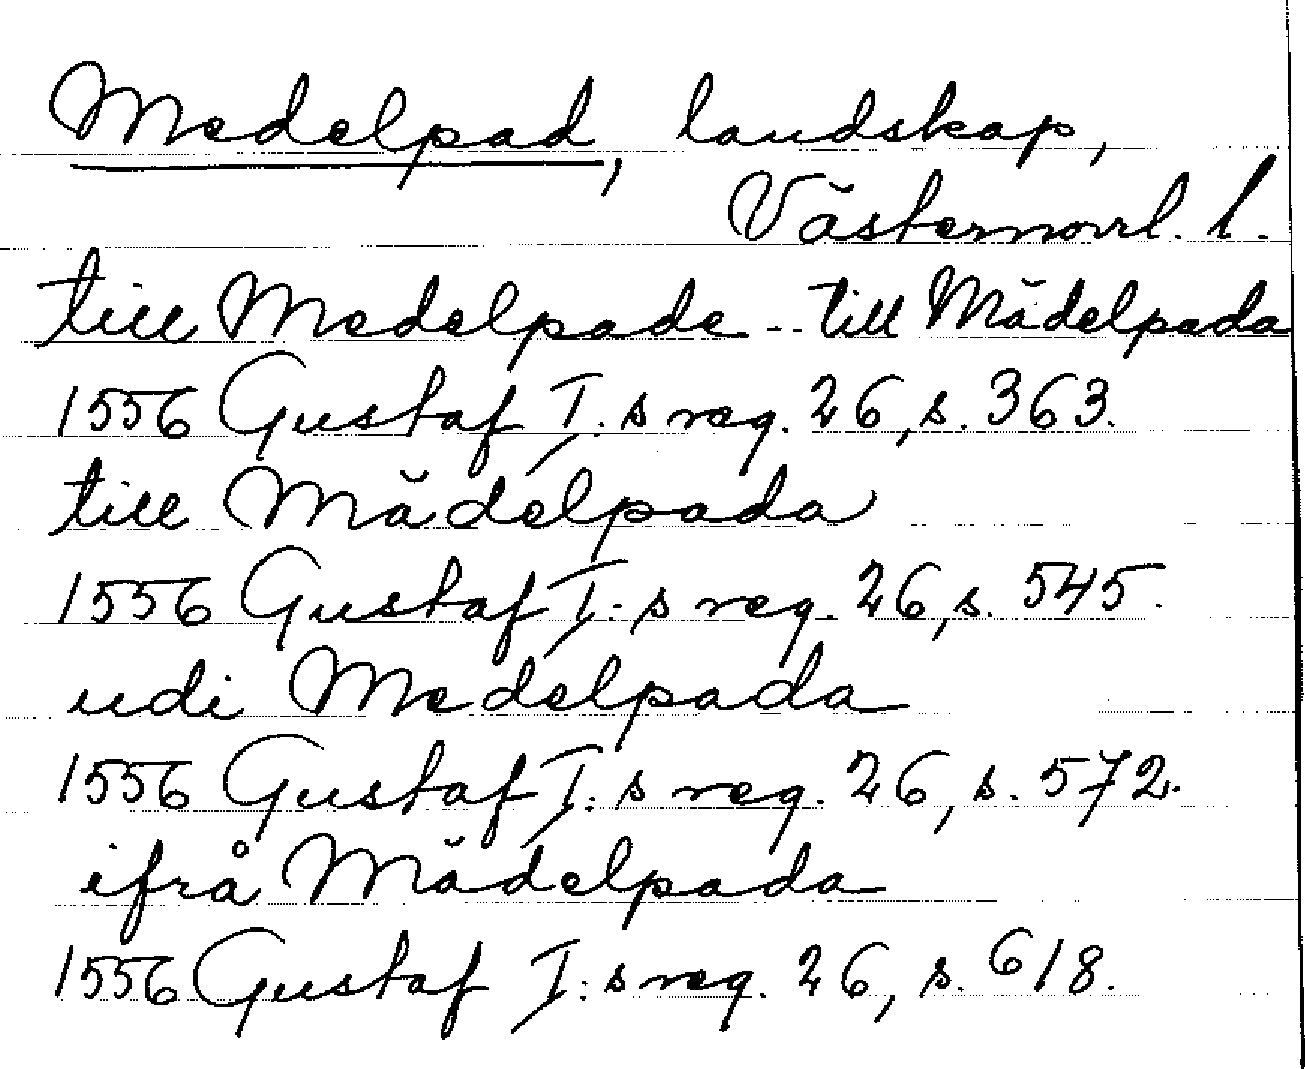 Medelpad, landskap,
Västernorrl. l.
till Medelpade - - till Mädelpada
1556 Gustaf I:s reg. 26, s. 363.
till Mädelpada
1556 Gustaf I:s reg. 26, s. 545.
udi Medelpada
1556 Gustaf I:s reg. 26, s. 572.
ifrå Mädelpada
1556 Gustaf I:s reg. 26, s. 618.